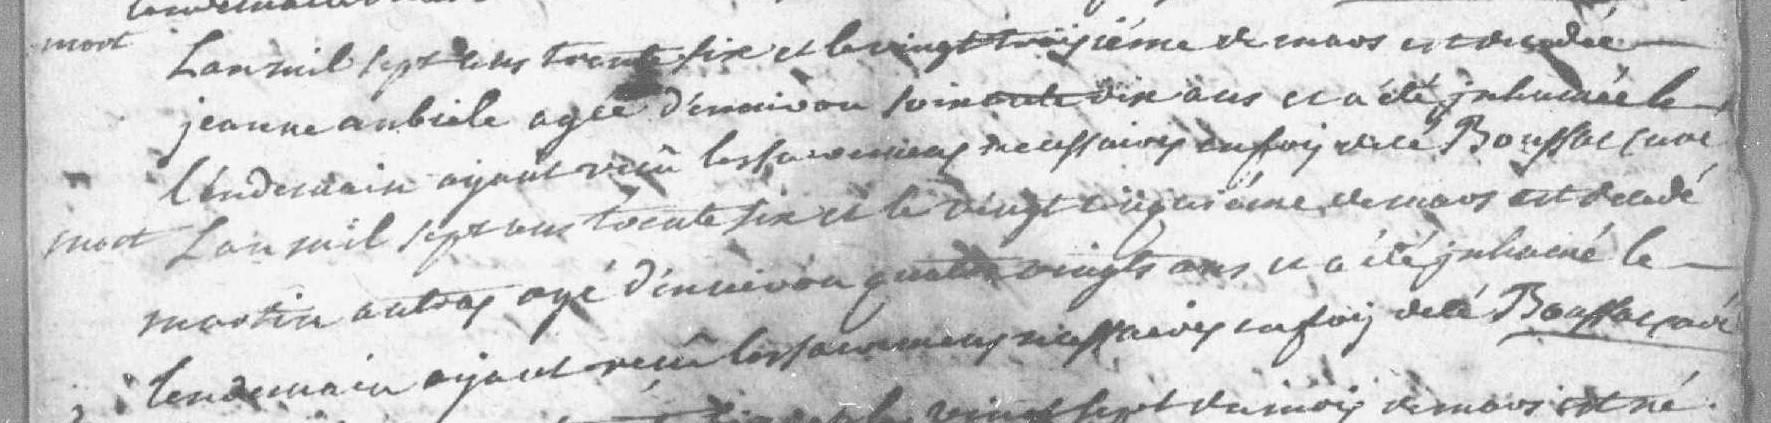 mort Lan mil sept cens trente six et le vingt troisiéme de mars est decedée
jeanne aubiele agée d'environ soixante dix ans et a été jnhumée le
lendemain ayant reçû les sacremens necessaires en foy de ce Bouffac curé
mort Lan mil sept cens trente six et le vingt cinquiéme de mars est decedé
martin autras agé d'environ quatre vingts ans et a été jnhumé le
lendemain ayant reçû les sacremens necessaires en foy de ce Bouffac curé
vingt sept du mois de mars est né